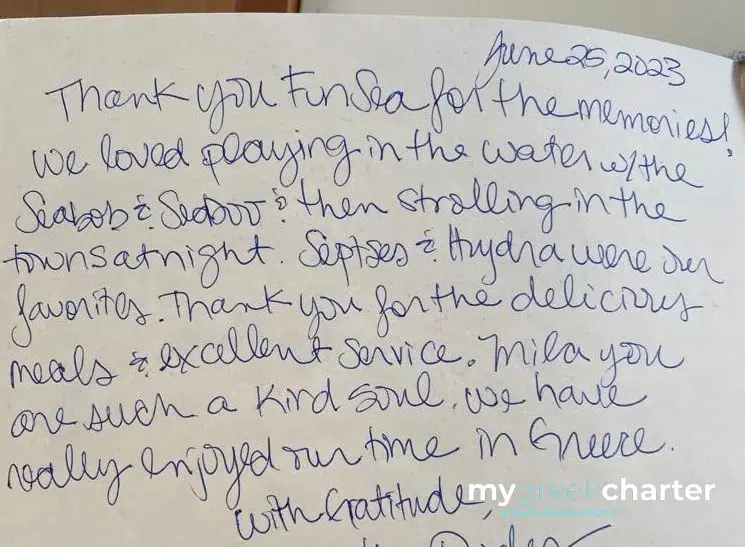 June 25, 2023
Thank you FunSea for the memories!
We loved playing in the water w/ the
Seabob & Seadoo & then strolling in the
towns at night. Septses & Hydra were our
favorites. Thank you for the delicious
meals & excellent service. Mila you
are such a kind soul. We have
really enjoyed our time in Greece.
With Gratitude,
mygreekcharter